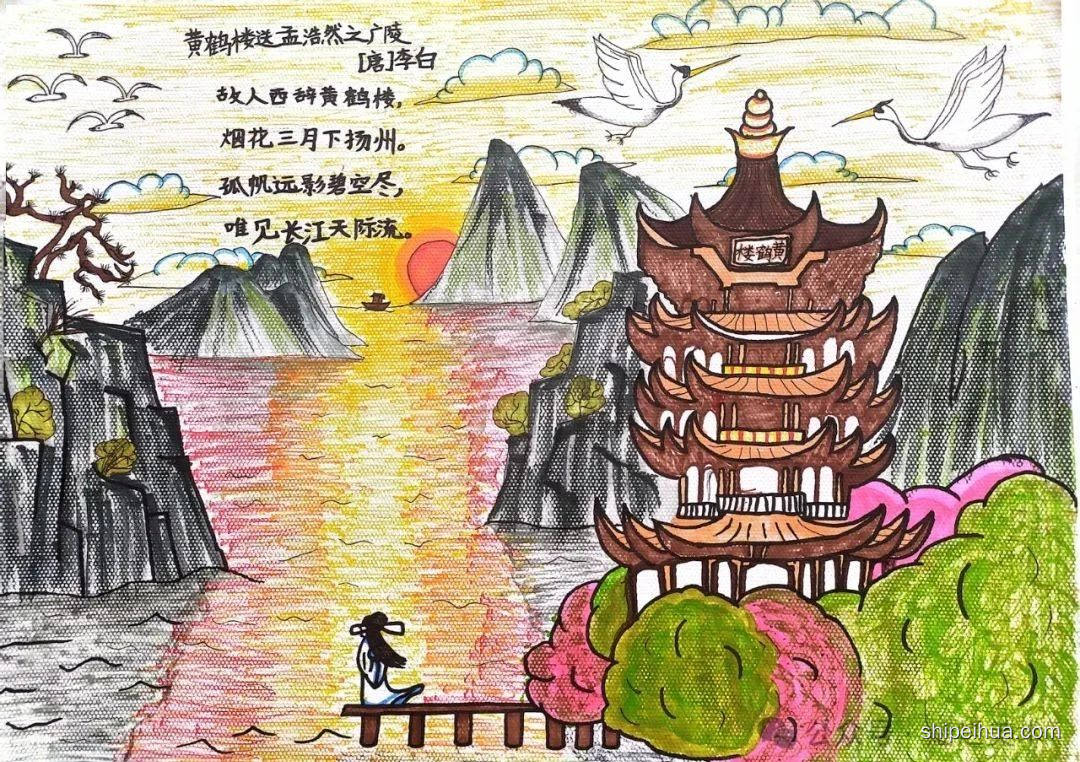 黄鹤楼送孟浩然之广陵
[唐]李白
故人西辞黄鹤楼，
烟花三月下扬州。
孤帆远影碧空尽，
唯见长江天际流。
黄鹤楼
shipeihua.com